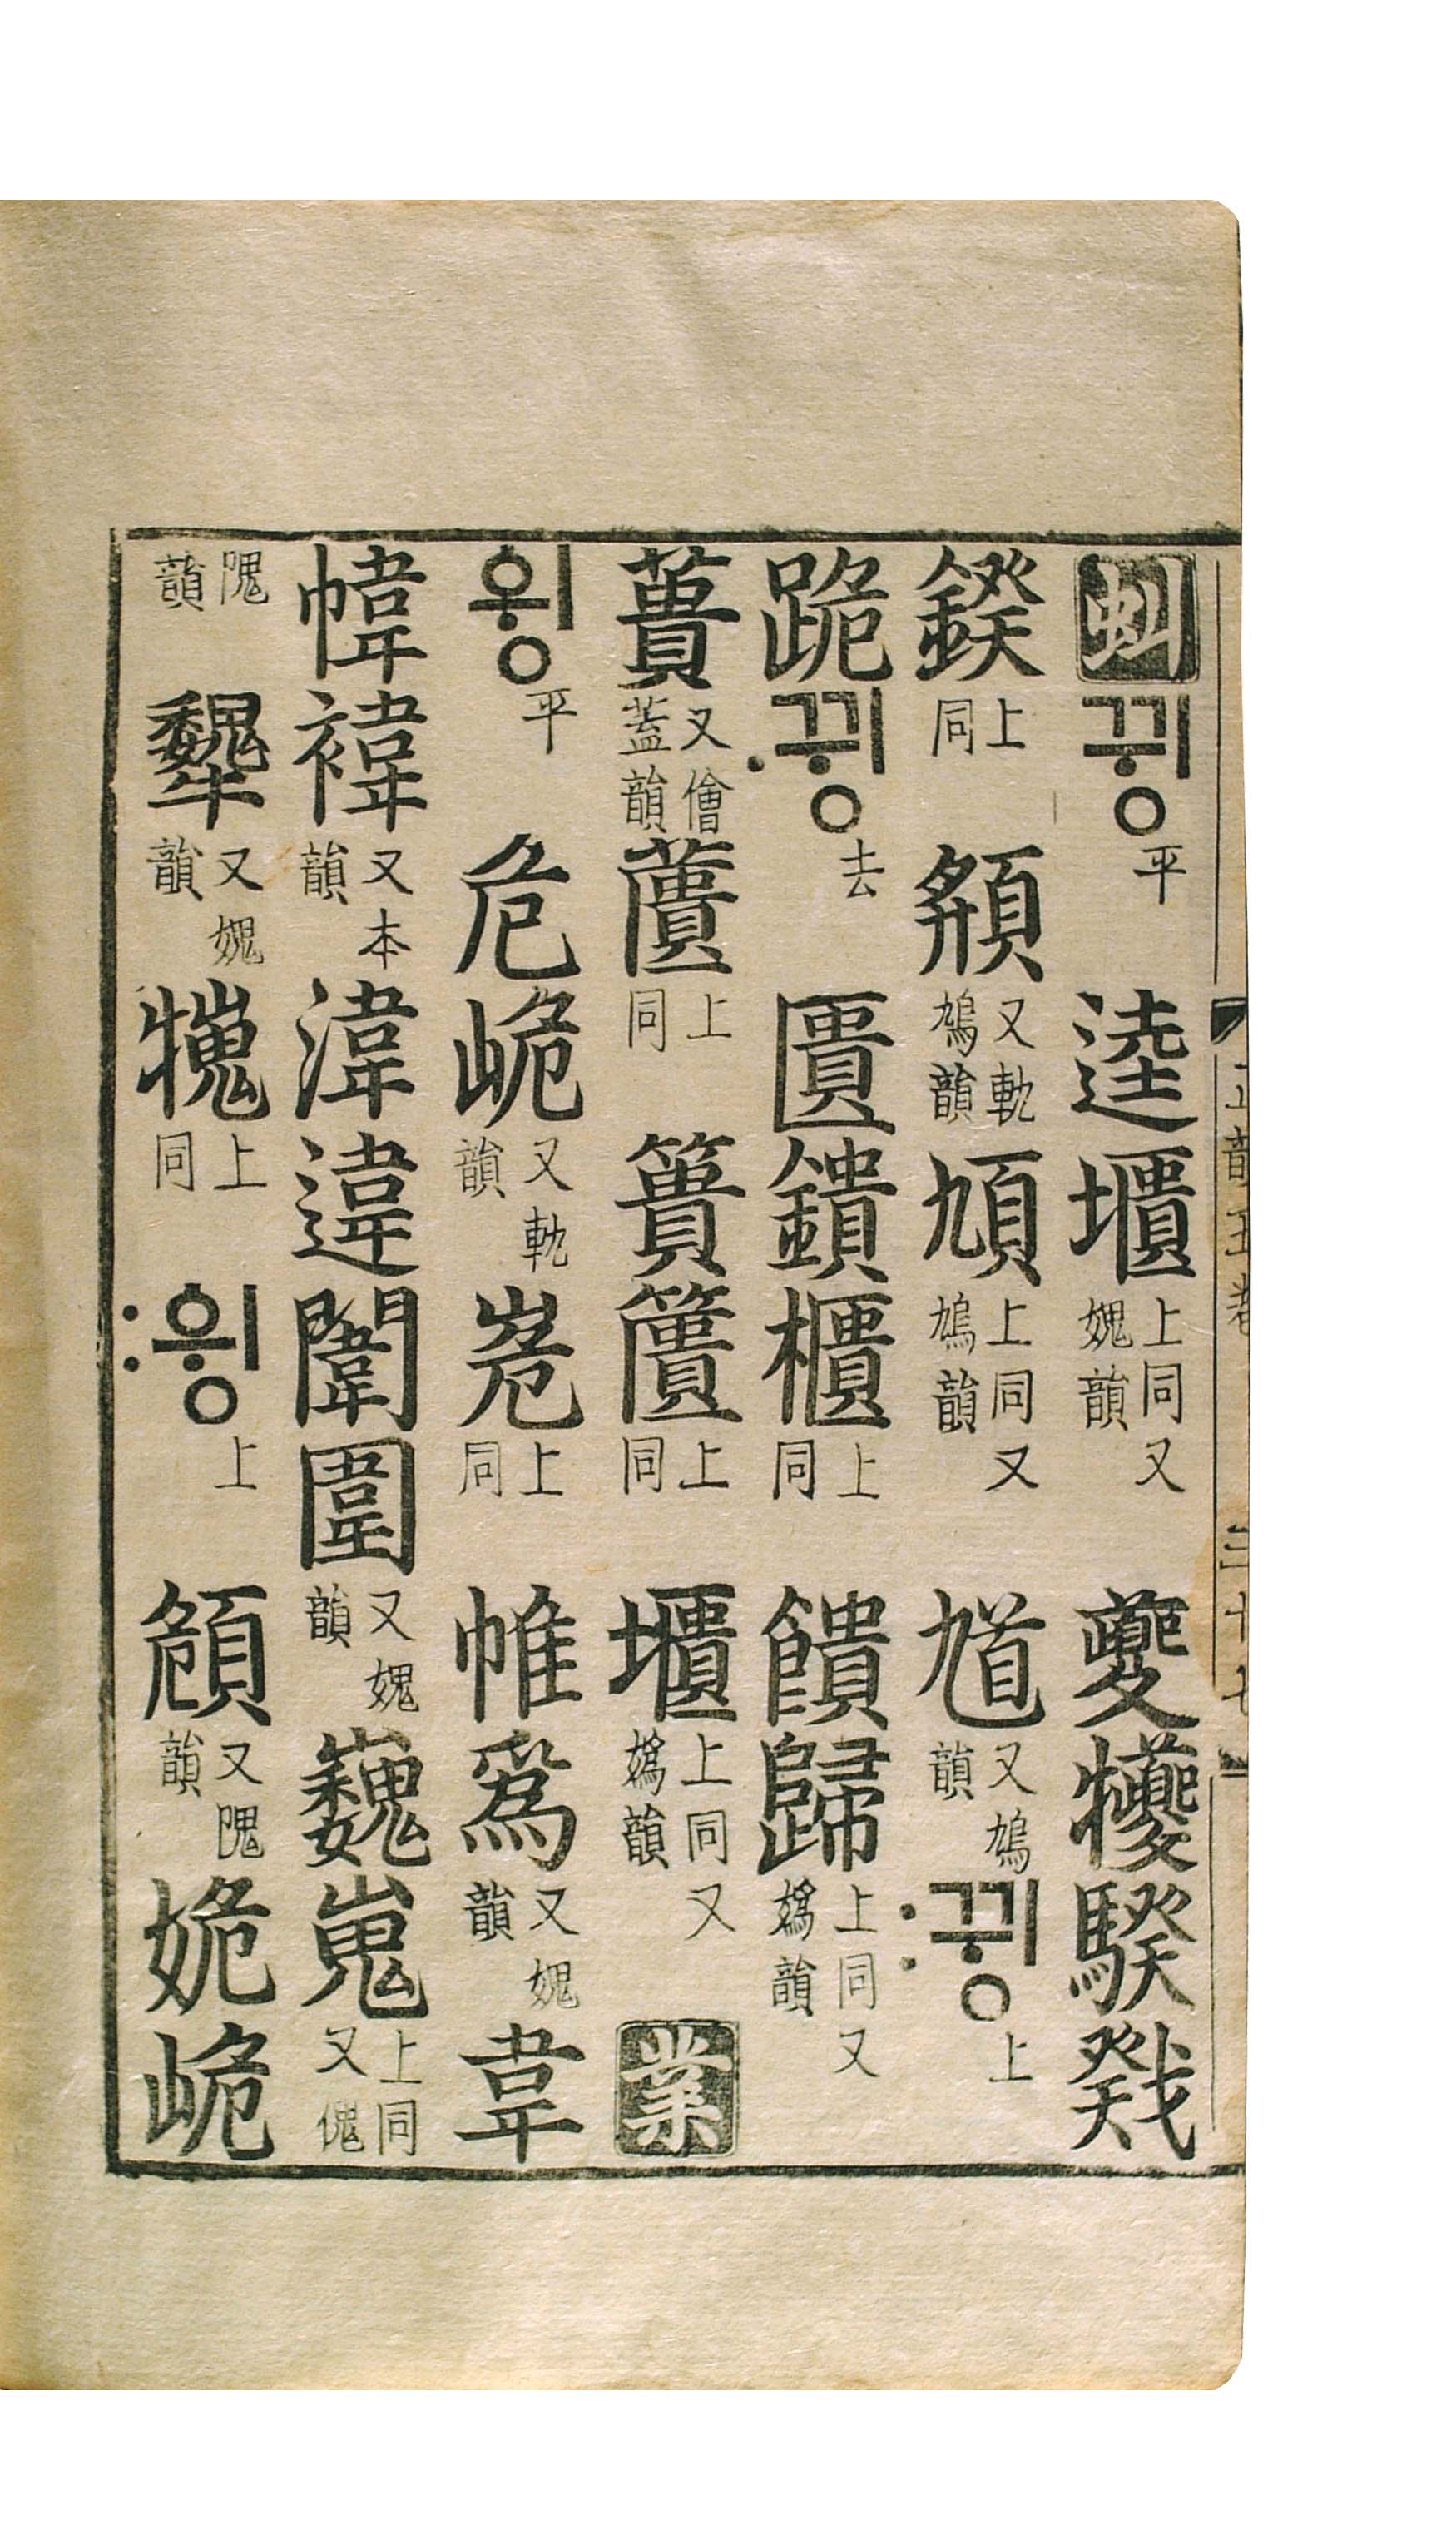 虯뀡平逵㙺上同又媿韻夔犪騤戣
鍨上同頯又軌鳩韻頄上同又鳩韻馗又鳩韻뀡〯上
跪뀡〮去匱鐀櫃上同饋歸上同又嬀韻
蕢又儈蓋韻上同簣上同㙺上同又嬀韻業
ᅌᅱᆼ平危峗又軌韻峞上同帷爲又媿韻韋
幃褘又本韻湋違闈圍又媿韻巍嵬上同又傀
隗韻犩又媿韻上同ᅌᅱᆼ〯上頠又隗韻姽峗